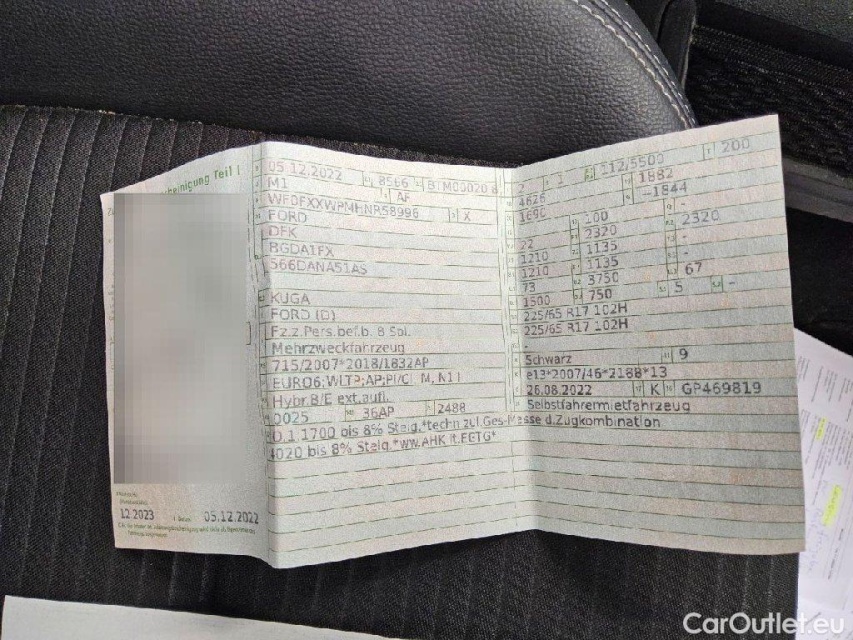 Teil I
12 2023
05.12.2022
05.12.2022 8566 BTM00020 8
M1 AF
WFDFXXWPMHNR58996 X
FORD
DFK
BGDA1FX
S66DANA51AS
KUGA
FORD (D)
Fz.z.Pers.bef.b. 8 Spl.
Mehrzweckfahrzeug
715/2007*2018/1832AP
EURO6;WLTP;AP;PI/CI M,N1 I
Hybr.B/E ext.aufl.
0025 36AP 2488
O.1 1700 bis 8% Steig.*techn zul.Ges-Masse d.Zugkombination
4020 bis 8% Steig.*ww.AHK lt.EETG*
2 2 112/5500 200
4626 1882
1690 -1844
100 -
22 2320 2320
1210 1135 -
1210 1135 -
73 3750 67
1500 750 5 -
225/65 R17 102H
225/65 R17 102H
Schwarz 9
e13*2007/46*2188*13
26.08.2022 K GP469819
Selbstfahrermietfahrzeug
CarOutlet.eu